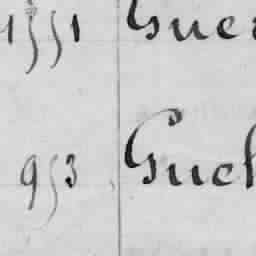 1551 Gue
953 Guch